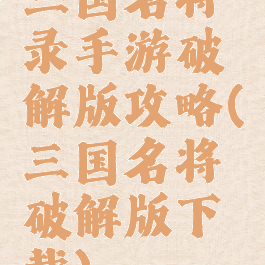 三国名将
录手游破
解版攻略(
三国名将
破解版下
载)